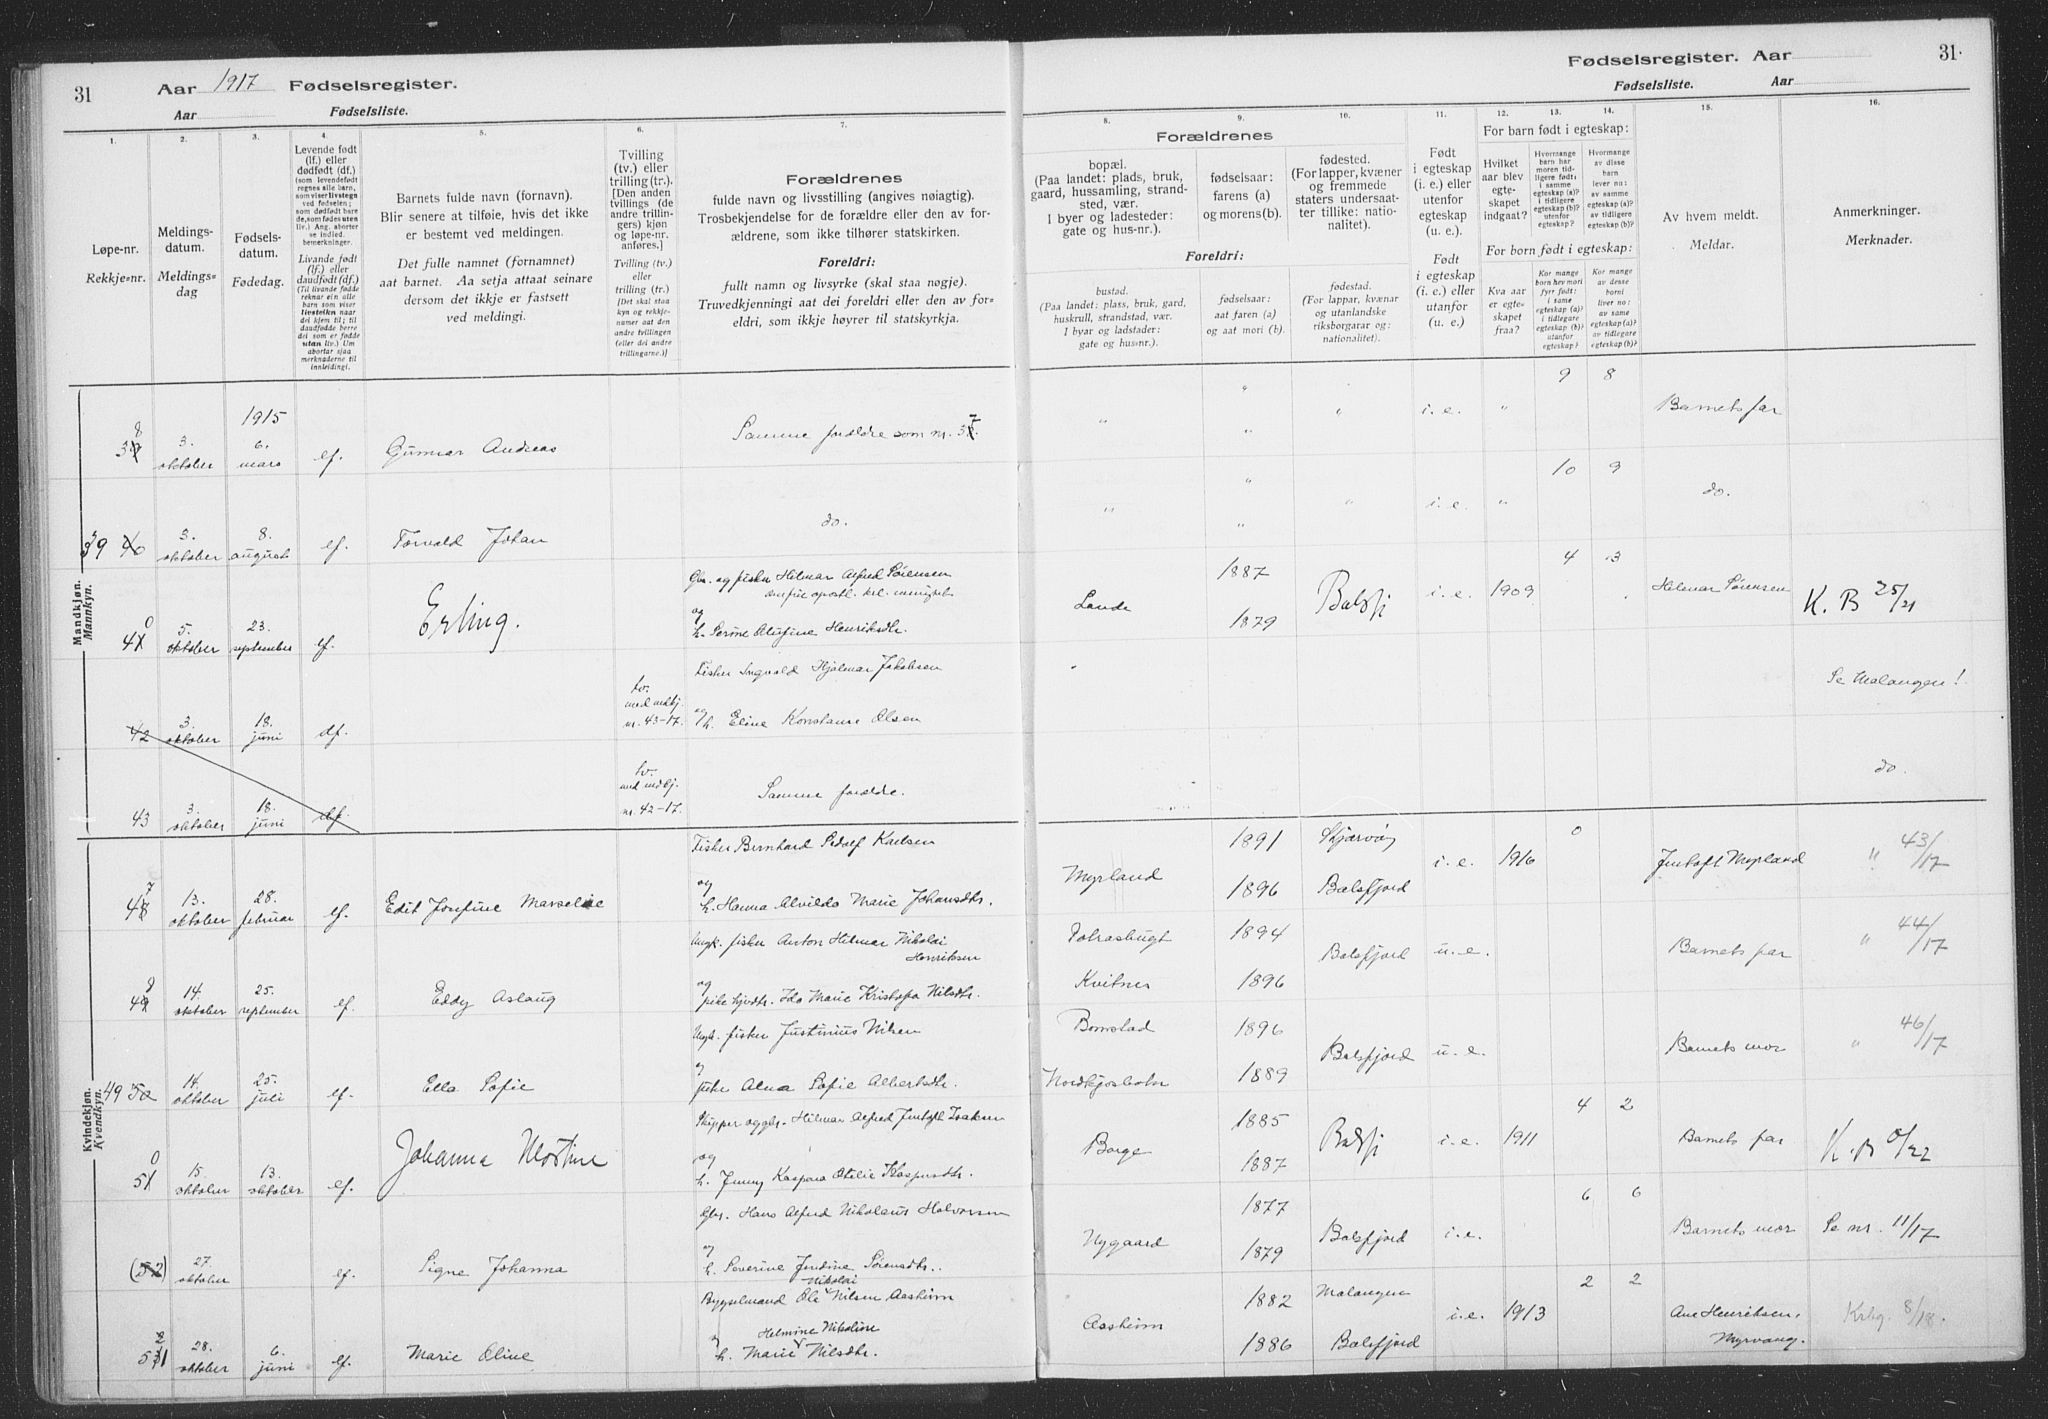 31
Aar 1917 Fødselsregister.
Aar Fødselsliste.
1.
2.
3.
4.
5.
6.
7.
Løpe-nr.
Rekkje=nr.
Meldings-
datum.
Meldings=
dag
Fødsels-
datum.
Fødedag.
Levende født
(lf.) eller
dødfødt (df.)
(som levendefødt
regnes alle barn,
som viser livstegn
ved fødselen;
som dødfødt bar-
de, som fødes uten
liv.) Ang. aborter
se indled.
bemerkninger.
Livande født
(lf.) eller
daudfødt (df.)
(Til livande fødde
reknar ein alle
barn som viser
livsteikn naar
dei kjem til; til
daudfødde berre
dei som er fødde
utan liv.) Um
abortar sjaa
merknaderne til
innleidingi.
Barnets fulde navn (fornavn).
Blir senere at tilføie, hvis det ikke
er bestemt ved meldingen.
Det fulle namnet (fornamnet)
aat barnet. Aa setja attaat seinare
dersom det ikkje er fastsett
ved meldingi.
Tvilling
(tv.) eller
trilling (tr.).
[Den anden
tvillings (de
andre trillin-
gers) kjøn
og løpe-nr.
anføres.]
Tvilling (tv.)
eller
trilling (tr.)
[Det skal staa
kyn og rekkje-
numer aat den
andre tvillingen
(eller dei andre
trillingarne.)]
Forældrenes
fulde navn og livsstilling (angives nøiagtig).
Trosbekjendelse for de forældre eller den av for-
ældrene, som ikke tilhører statskirken.
Foreldri:
fullt namn og livsyrke (skal staa nøgje).
Truvedkjenningi aat dei foreldri eller den av for-
eldri, som ikkje høyrer til statskyrkja.
Mandkjøn.
Mannkyn.
8
39
3. oktober
1915
6. mars
lf.
Gunnar Andreas
Samme forældre som nr. 37.
39 40
3. oktober
8. august
lf.
Torvald Johan
do.
0
41
5. oktober
23. september
lf.
Erling.
Gbr. og fisker Hilmar Alfred Sørensen
og
h. Serine Olufine Henriksdtr.
42
3. oktober
18. juni
df.
tv.
med mdkj.
nr. 43-17.
Fisker Ingvald Hjalmar Jakobsen
og
h. Eline Konstanse Olsen
43
3. oktober
18. juni
df.
tv.
med mdkj.
nr. 42-17.
Samme forældre.
Kvindekjøn.
Kvendkyn.
7
48
13. oktober
28. februar
lf.
Edit Josefine Marselie
Fisker Bernhard Edolf Karlsen
og
h. Hanna Alvilda Marie Johansdtr.
8
49
14. oktober
25. september
lf.
Eddy Aslaug
Ungk. fisker Anton Hilmar Nikolai
Henriksen
og
pike hjvdtr. Ida Marie Kristofa Nilsdtr.
49 50
14. oktober
25. juli
lf.
Ella Sofie
Ungk. fisker Justinius Nilsen
og
pike Alna Sofie Albertsdtr.
0
51
15. oktober
13. oktober
lf.
Johanna Mortine
Skipper og gbr. Hilmar Alfred Jentoft Isaksen
og
h. Jenny Kaspara Otelie Kaspersdtr.
(52)
27. oktober
lf.
Signe Johanna
Gbr. Hans Alfred Nikolaus Halvorsen
og
h. Severine Jordine Sørensdtr.
2
531
28. oktober
6. juni
lf.
Marie Oline
Nikolai
Bygselmand Ole Nilsen Aasheim
og
Helmine Nikoline
h. Marie Nilsdtr.
Fødselsregister. Aar
31.
Fødselsliste. Aar
8.
9.
10.
11.
12.
13.
14.
15.
16.
Forældrenes
bopæl.
(Paa landet: plads, bruk,
gaard, hussamling, strand-
sted, vær.
I byer og ladesteder:
gate og hus-nr.).
fødselsaar:
farens (a)
og morens (b).
fødested.
(For lapper, kvæner
og fremmede
staters undersaat-
ter tillike: natio-
nalitet).
Foreldri:
bustad.
(Paa landet: plass, bruk, gard,
huskrull, strandstad, vær.
I byar og ladstader:
gate og hus=nr.).
fødselsaar:
aat faren (a)
og aat mori (b).
fødestad.
(For lappar, kvænar
og utanlandske
riksborgarar og:
nationalitet).
Født
i egteskap
(i. e.) eller
utenfor
egteskap
(u. e.).
Født
i egteskap
(i. e.) eller
utanfor
egteskap
(u. e.).
For barn født i egteskap:
Hvilket
aar blev
egte-
skapet
indgaat?
Hvormange
barn har
moren tid-
ligere født:
i samme
egteskap (a)?
i tidligere
egteskap (b)?
utenfor
egteskap?
Hvormange
av disse
barn
lever nu:
av samme
egteskap (a)?
av tidligere
egteskap (b)?
For born født i egteskap:
Kva aar
er egte-
skapet
fraa?
Kor mange
born hev mori
fyrr født:
i same
egteskap (a)?
i tidlegare
egteskap (b)?
utanfor
egteskap?
Kor mange
av desse
borni
liver no:
av same
egteskap (a)?
av tidlegare
egteskap (b)?
Av hvem meldt.
Meldar.
Anmerkninger.
Merknader.
" " " " i. e. " 9 8 Barnets far
" " " " i. e. " 10 9 do.
Lande 1887 1879 Balsfj i. e. 1909 4 3 Hilmar Sørensen K. B 25/21
" Se Malangen!
do.
Myrland 1891 1896 Skjærvøy Balsfjord i. e. 1916 0 Jentoft Myrland " 43/17
Kvitnes 1894 1896 Balsfjord u. e. Barnets far " 44/17
Bomstad Nordkjosbotn 1896 1889 Balsfjord u. e. Barnets mor " 46/17
Borge 1885 1887 Balsfj i. e. 1911 4 2 Barnets far K. B /22
Nygaard 1877 1879 Balsfjord i. e. 6 6 Barnets mor Se nr. 11/17
Aasheim 1882 1886 Malangen Balsfjord i. e. 1913 2 2 Ane Henriksen, Myrvang. Krbg. 8/18.